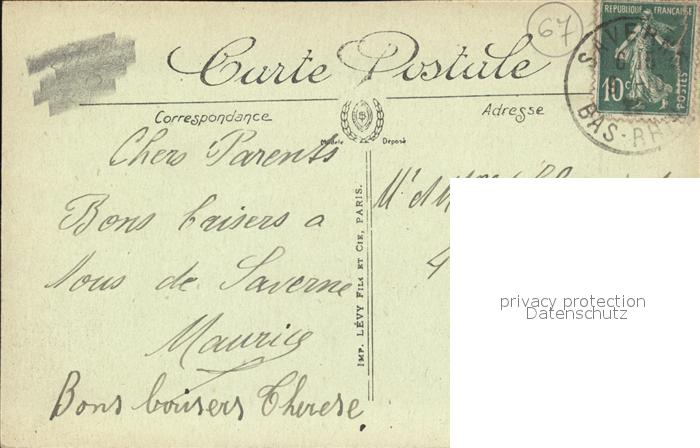 67
RÉPUBLIQUE FRANÇAISE
10c
POSTES
SAVERNE
BAS-RHIN
Carte Postale
Correspondance
Adresse
Modèle Déposé
Chers Parents
Bons baisers a
Vous de Saverne
Maurice
Bons baisers Therese
IMP. LÉVY FILS ET CIE, PARIS.
Mr et Mme
4
privacy protection
Datenschutz